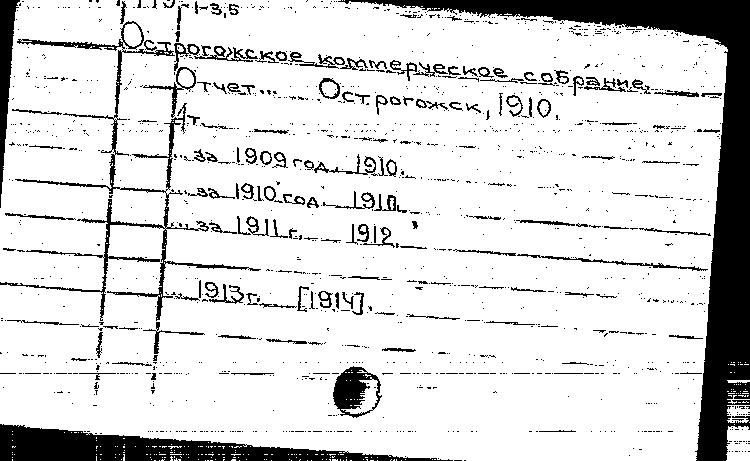 -1-3,5
Острогожское коммерческое собрание.
Отчет... Острогожск, 1910.
4т.
... за 1909 год. 1910.
... за 1910 год. 1911.
... за 1911 г. 1912.
... 1913г. [1914].